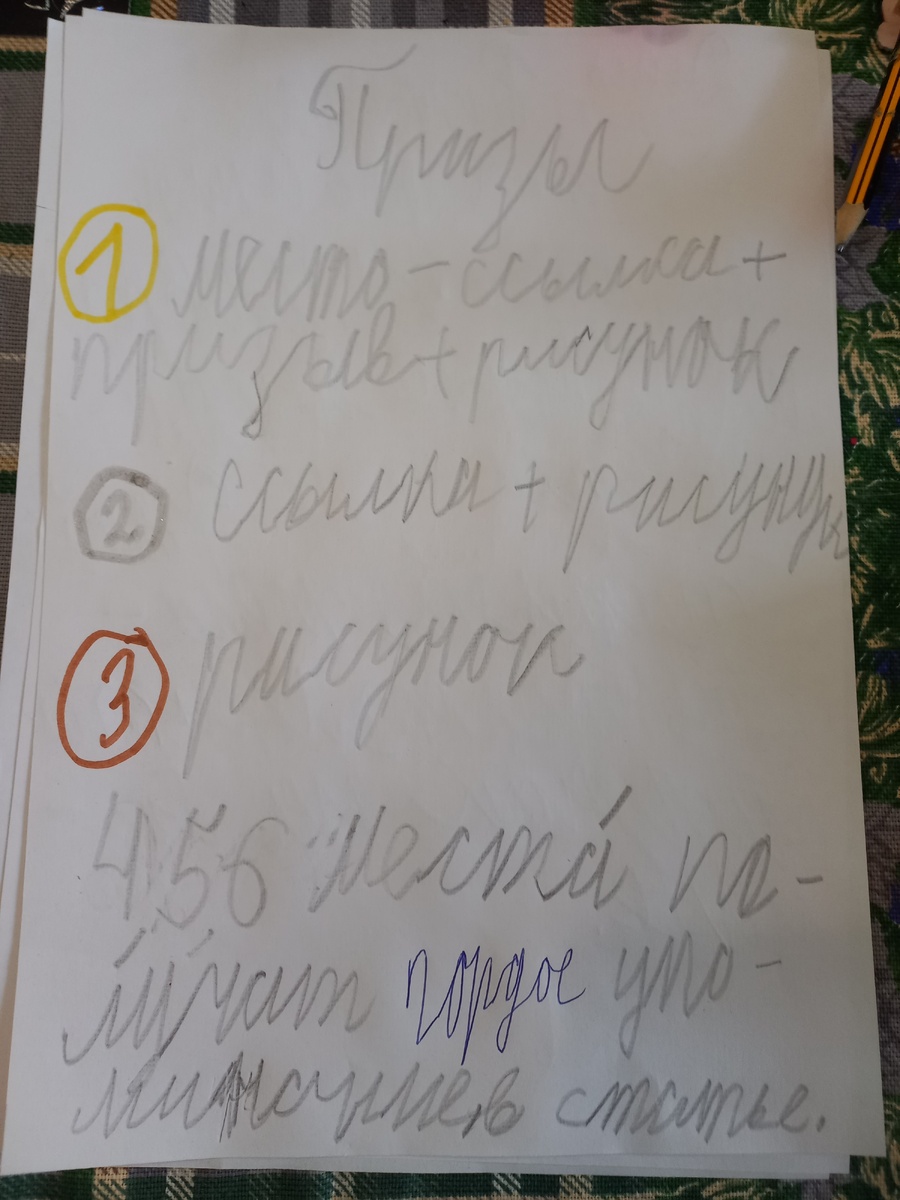 Призы
1 место - ссылка +
призыв + рисунок
2 ссылка + рисунук
3 рисунок
4,5 6 Места́ по-
лу́чат гордое упо-
минание, в статье.